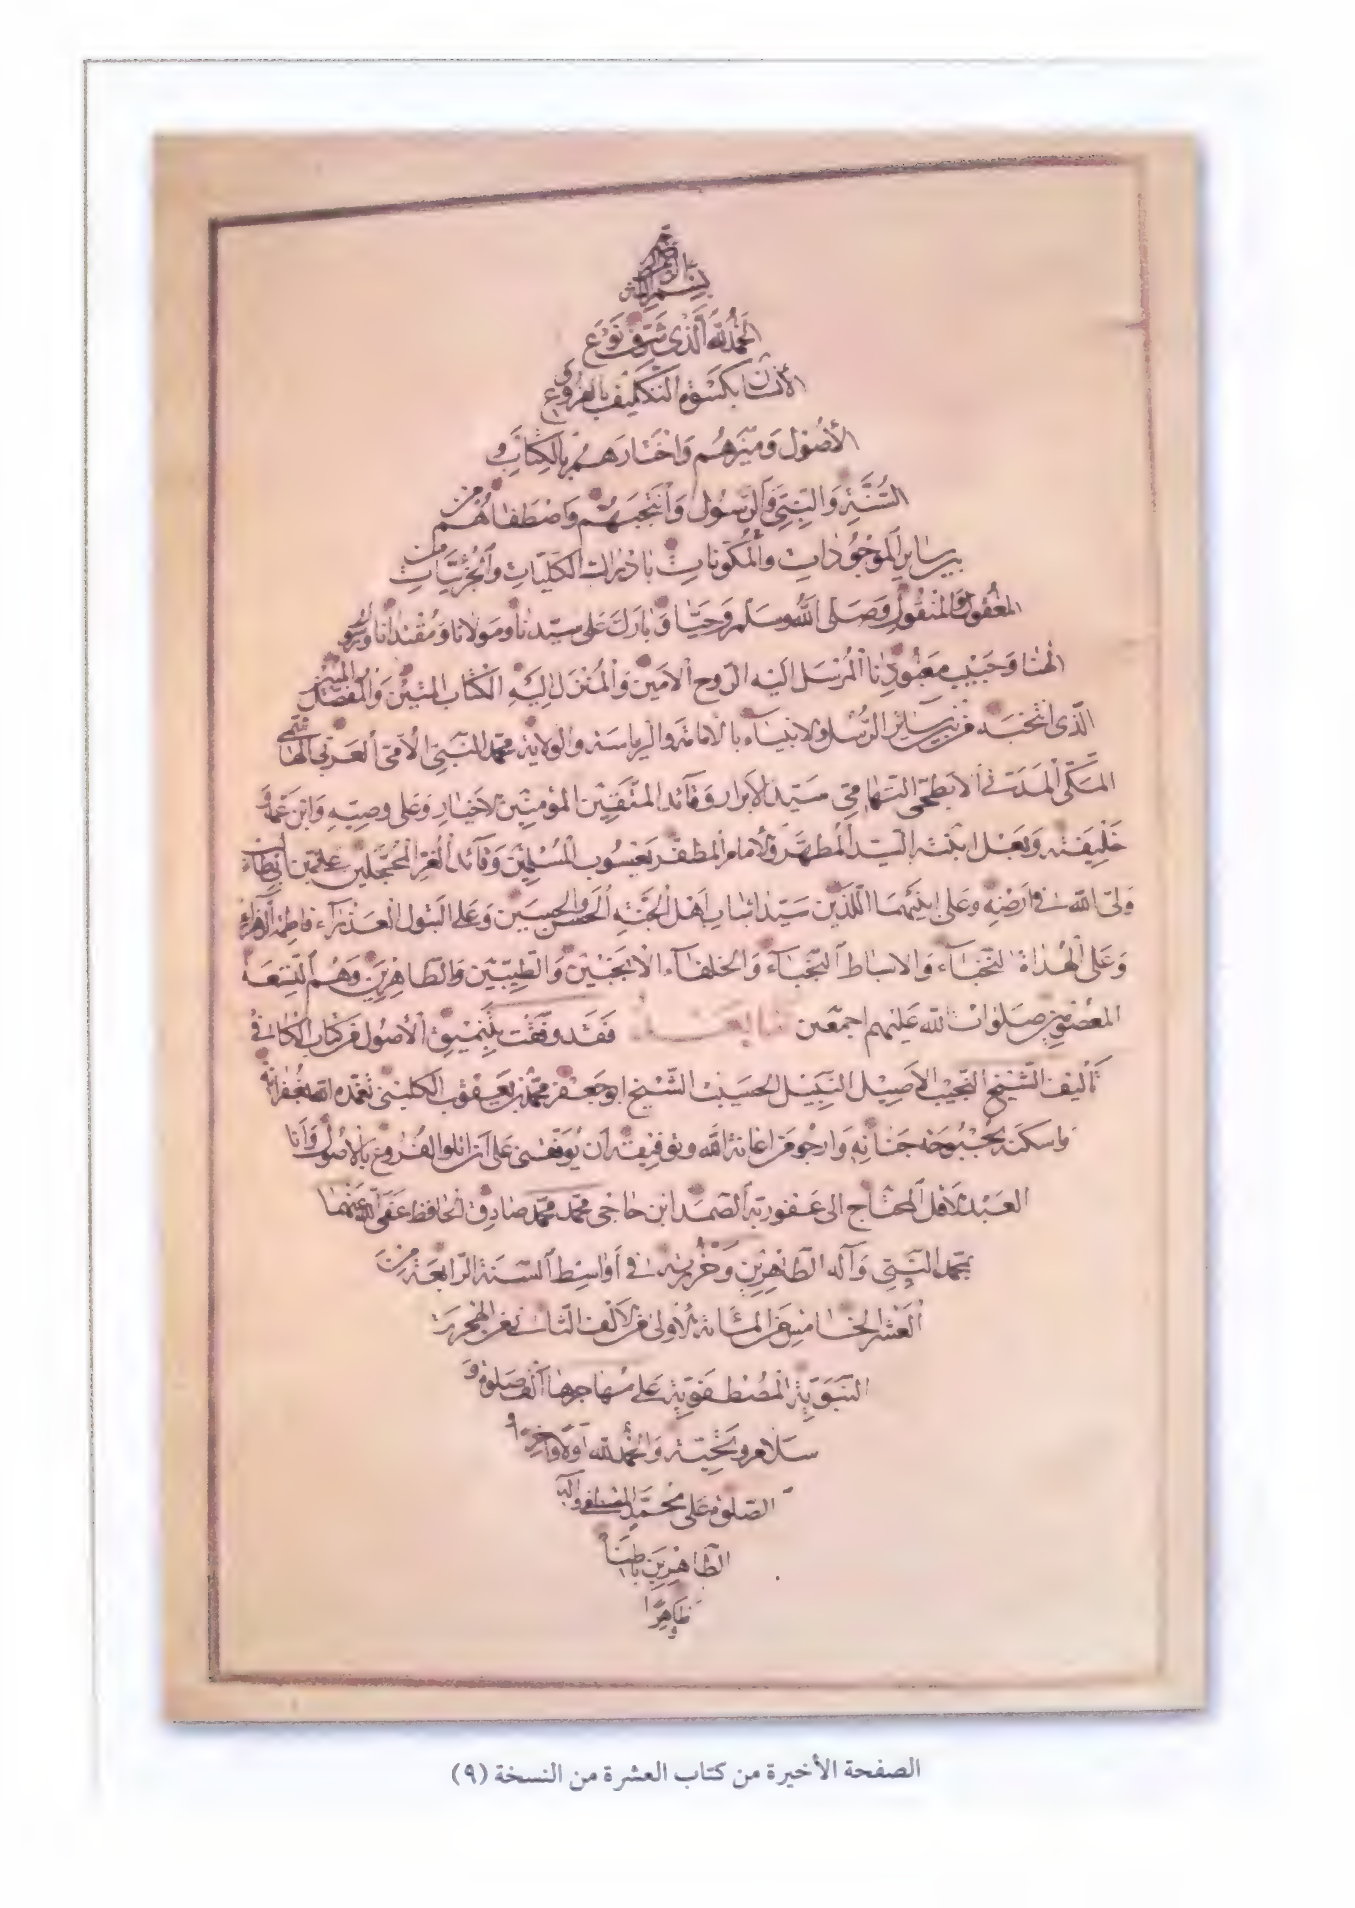 بسم الله الرحمن الرحيم
الحمد لله الذى شرف نوع
الأنسان بكسوة التكليف بالفروع و
الأصول وميزهم واختارهم بالكتاب و
السنة والنبى والرسول وانتجبهم واصطفاهم من
بين ساير الموجودات والمكونات بادراك الكليات والجزئيات من
المعقول والمنقول وصلى الله وسلم وحيا وبارك على سيدنا ومولانا ومقتدانا ورسول
الهنا وحبيب معبودنا المرسل اليه الروح الامين والمنزل اليه الكتاب المبين والمفضل
الذى انتخبه من بين ساير الرسل والانبياء بالامامة والرياسة والولاية محمد النبى الأمى العربى الهاشمى
المكى المدنى الابطحى التهامى سيد الابرار وقائد المتقين المؤمنين الاخيار وعلى وصيه وابن عمه و
خليفته وبعل ابنته السيد المطهر والامام المظفر يعسوب المسلمين وقائد الغر المحجلين على بن ابى طالب
ولى الله فى ارضه وعلى ابنيهما اللذين سيدا شباب اهل الجنة الحسن والحسين وعلى البتول العذراء فاطمة الزهراء
وعلى الهداة النجباء والاسباط النجباء والخلفاء الانجبين والطيبين والطاهرين وهم التسعة
المعصومين صلوات الله عليهم اجمعين اما بعد فقد وفقت بتنميق الأصول من كتاب الكافى
تأليف الشيخ النجيب الاصيل النبيل الحسيب الشيخ ابو جعفر محمد بن يعقوب الكلينى تغمده الله بغفرانه
واسكنه بحبوحة جنانه وارجو من اعانة الله وتوفيقه أن يوفقنى على ان اتلو الفروع بالأصول وانا
العبد الاقل المحتاج الى عفو ربه الصمد ابن حاجى محمد محمد صادق الحافظ عفى الله عنهما
بمحمد النبى وآله الطاهرين فى أواسط السنة الرابعة من
العشر الخامس من المائة الأولى من الالف الثانى من الهجرة
النبوية المصطفوية على مهاجرها ألف صلوة و
سلام وتحية والحمد لله أولا وآخرا و
الصلوة على محمد المصطفى وآله
الطاهرين باطنا
وظاهرا
الصفحة الأخيرة من كتاب العشرة من النسخة (٩)